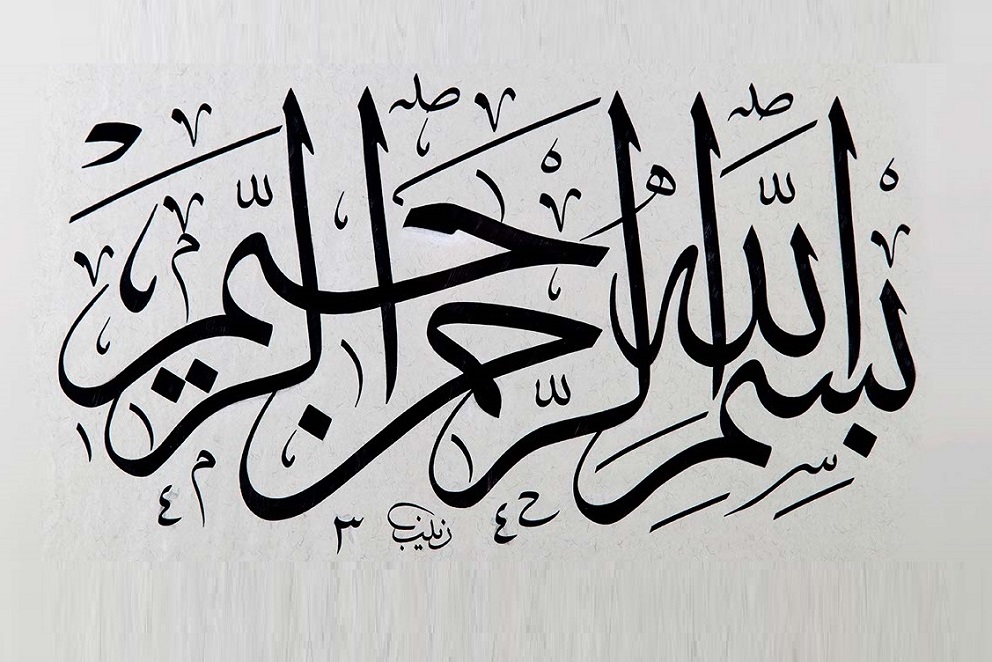 بِسْمِ اللَّهِ الرَّحْمَٰنِ الرَّحِيمِ
زينب ١٤٤٣